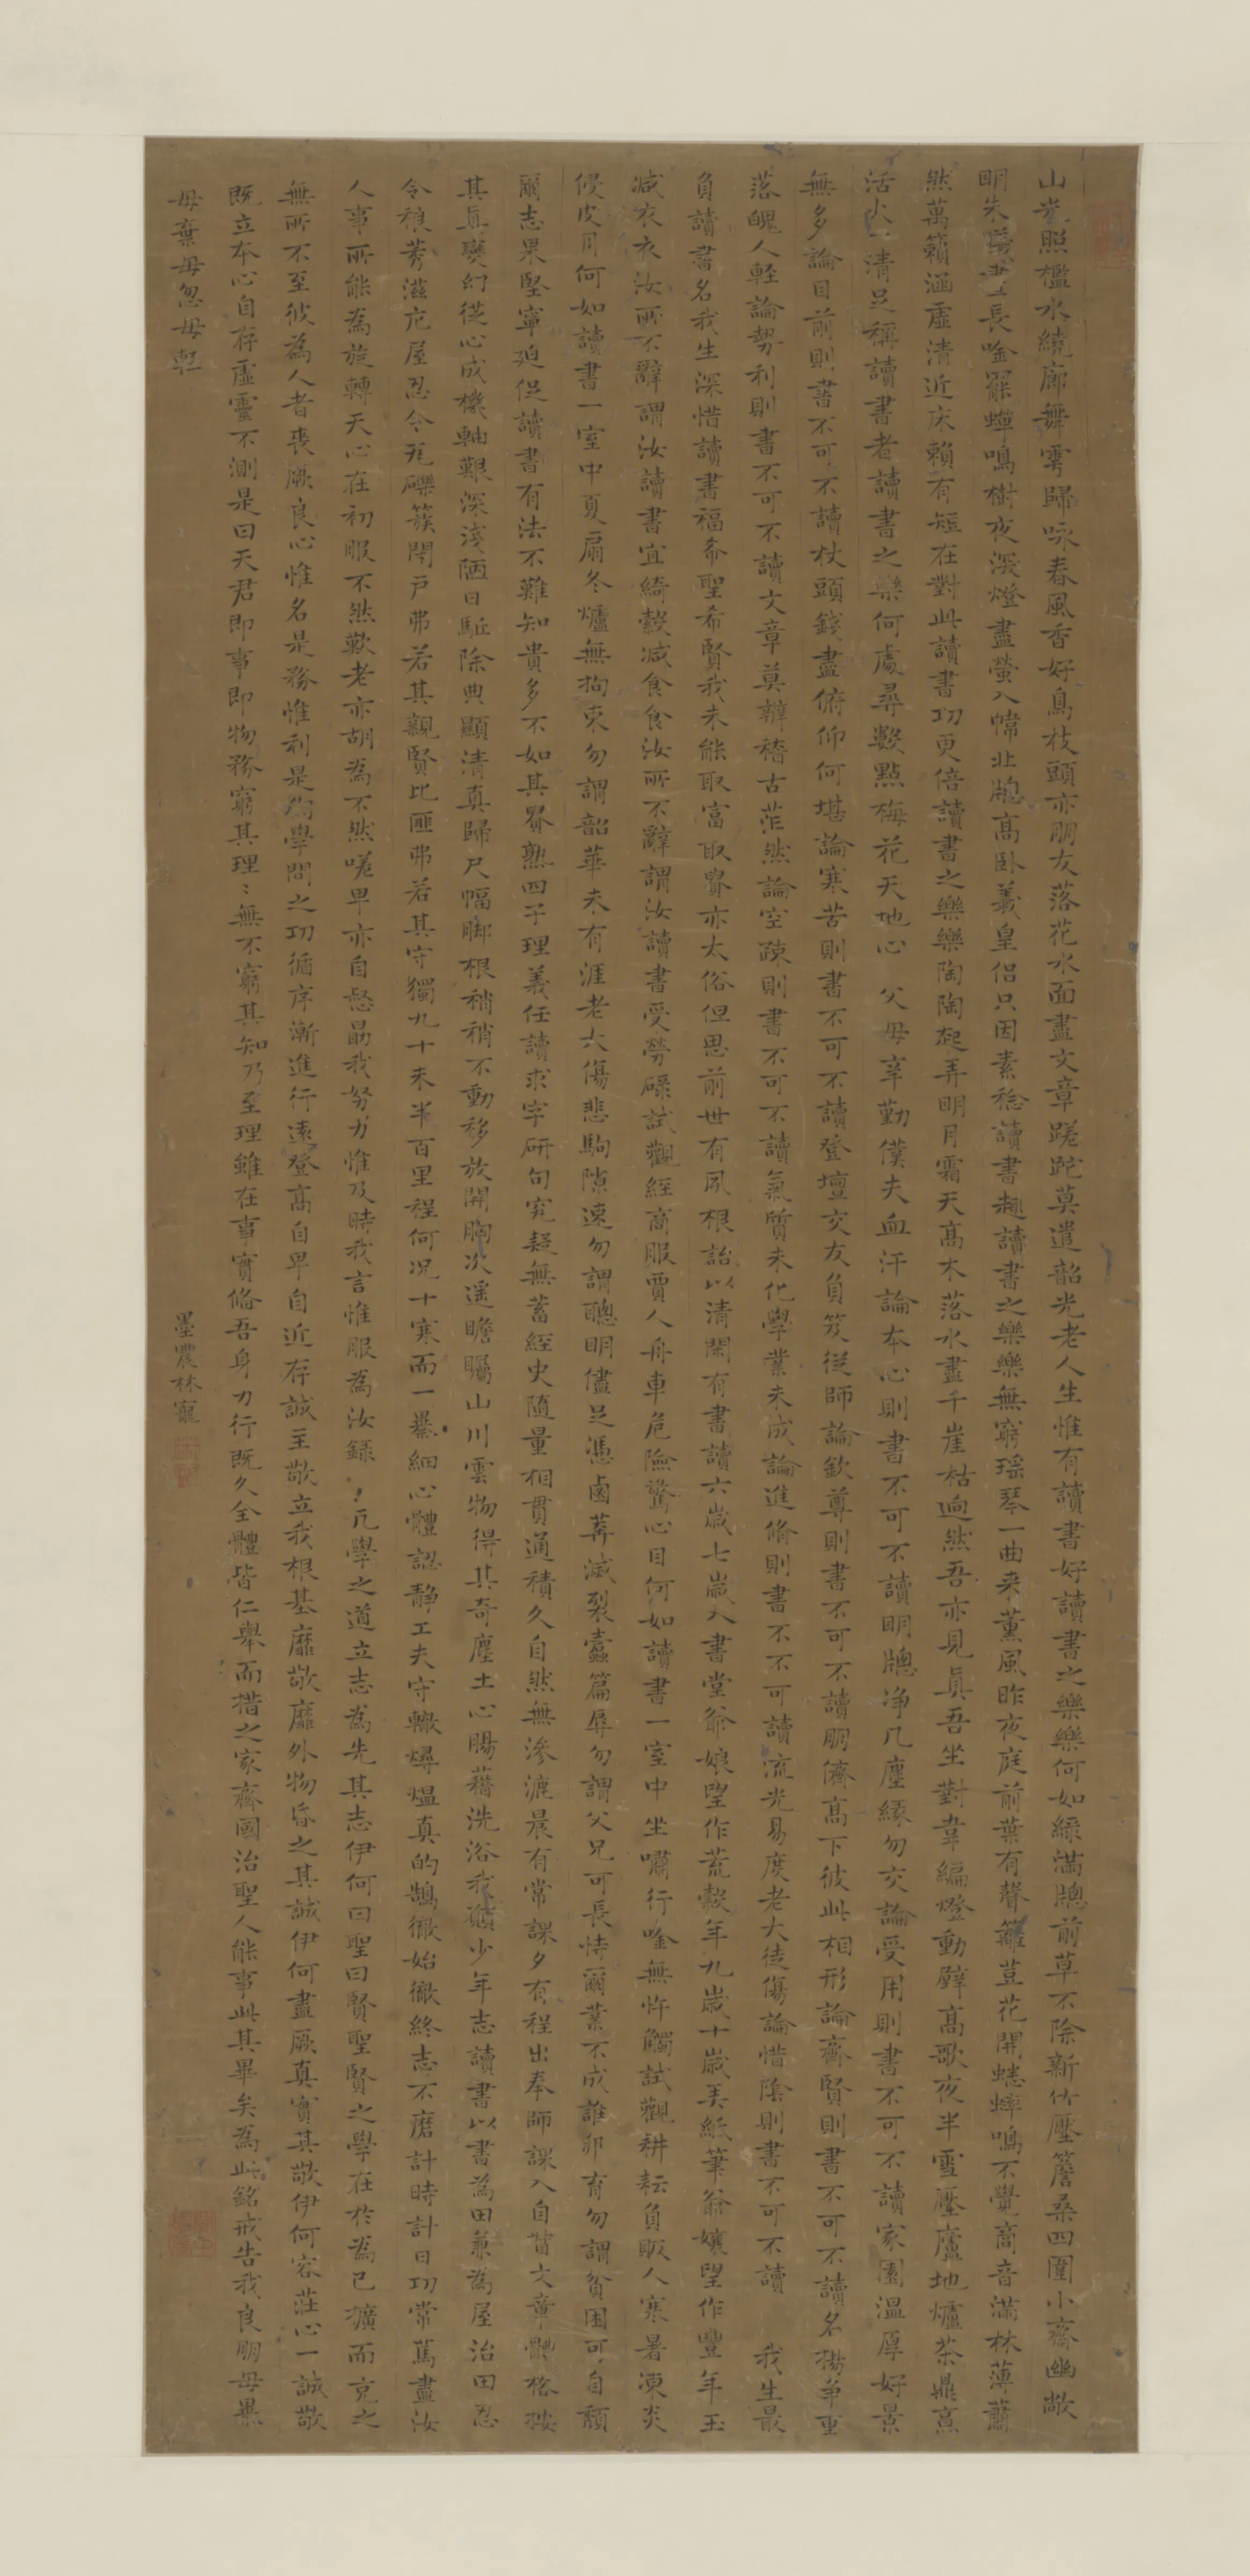 山光照檻水繞廊舞雩歸咏春風香好鳥枝頭亦朋友落花水面盡文章蹉跎莫遣韶光老人生惟有讀書好讀書之樂樂何如緑滿牕前草不除新竹壓簷桑四圍小齋幽敞
明朱長唫罷蟬鳴樹夜深燈盡螢入幃北牕高卧羲皇侣只因素稔讀書趣讀書之樂樂無窮瑶琴一曲来薫風昨夜庭前葉有聲籬荳花開蟋蟀鳴不覺商音滿林薄蕭
然萬籟涵虛清近床賴有短在對此讀書功更倍讀書之樂樂陶陶起弄明月霜天高木落水盡千崖枯逈然吾亦見真吾坐對韋編燈動壁高歌夜半雪壓廬地爐茶鼎烹
活火一清足稱讀書者讀書之樂何處尋數點梅花天地心 父母辛勤僕夫血汗論本心則書不可不讀明牕净几塵緣勿交論受用則書不可不讀家園温厚好景
無多論目前則書不可不讀杖頭錢盡俯仰何堪論寒苦則書不可不讀登壇交友負笈從師論欽尊則書不可不讀朋儕高下彼此相形論齊賢則書不可不讀名揚爭重
落魄人輕論勢利則書不可不讀文章莫辨稽古茫然論空疎則書不可不讀氣質未化學業未成論進脩則書不不可讀流光易度老大徒傷論惜陰則書不可不讀 我生最
負讀書名我生深惜讀書福希聖希賢我未能取富取貴亦太俗但思前世有夙根詒以清閑有書讀六歲七歲入書堂爺娘望作荒穀年九歲十歲美紙筆爺孃望作豐年玉
减衣衣汝所不辭謂汝讀書宜綺縠减食食汝所不辭謂汝讀書受勞碌試觀經商服賈人舟車危險驚心目何如讀書一室中坐嘯行唫無忤觸試觀耕耘負販人寒暑凍炎
侵皮月何如讀書一室中夏扇冬爐無拘束勿謂韶華未有涯老大傷悲駒隙速勿謂聰明儘足憑鹵莽滅裂蠹篇辱勿謂父兄可長恃爾業不成誰卵育勿謂貧困可自頽
爾志果堅寧廹促讀書有法不難知貴多不如其貴熟四子理義任讀求字研句究疑無蓄經史隨量相貫通積久自然無滲漉晨有常課夕有程出奉師課入自督文章體格按
其真變幻從心成機軸艱深淺陋日駈除典顯清真歸尺幅脚根稍稍不動移放開胸次遥瞻矚山川雲物得其奇塵土心腸藉洗浴我願少年志讀書以書為田兼為屋治田忍
令稂莠滋庀屋忍令瓦礫簇閉戸弗若其親賢比匪弗若其守獨九十未半百里程何况十寒而一暴細心體認静工夫守轍燖煴真的鵠徹始徹終志不磨計時計日功常篤盡汝
人事所能為旋轉天心在初服不然歎老亦胡為不然嗟卑亦自恧勗我努力惟及時我言惟服為汝錄 凡學之道立志為先其志伊何曰聖曰賢聖賢之學在於為己擴而克之
無所不至彼為人者喪厥良心惟名是務惟利是徇學問之功循序漸進行遠登高自卑自近存誠主敬立我根基靡敬靡外物昏之其誠伊何盡厥真實其敬伊何容莊心一誠敬
既立本心自存虛靈不測是曰天君即事即物務窮其理〻無不窮其知乃至理雖在事實俻吾身力行既久全體皆仁舉而措之家齊國治聖人能事此其畢矣為此銘戒告我良朋毋暴
毋棄毋忽毋輕
墨農林寵